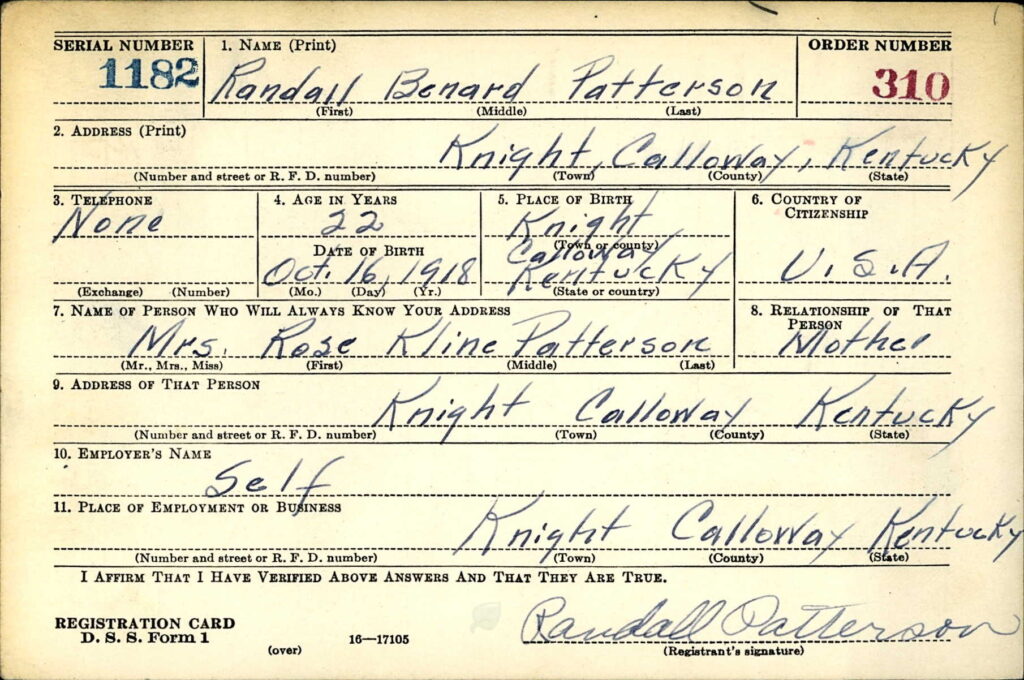 SERIAL NUMBER 1. NAME (Print) ORDER NUMBER
1182 Randall Benard Patterson 310
(First) (Middle) (Last)
2. ADDRESS (Print)
Knight, Calloway, Kentucky
(Number and street or R. F. D. number) (Town) (County) (State)
3. TELEPHONE 4. AGE IN YEARS 5. PLACE OF BIRTH 6. COUNTRY OF CITIZENSHIP
None 22 Knight
(Town or county)
DATE OF BIRTH Calloway
Oct. 16, 1918 Kentucky U.S.A.
(Exchange) (Number) (Mo.) (Day) (Yr.) (State or country)
7. NAME OF PERSON WHO WILL ALWAYS KNOW YOUR ADDRESS 8. RELATIONSHIP OF THAT PERSON
Mrs. Rose Kline Patterson Mother
(Mr., Mrs., Miss) (First) (Middle) (Last)
9. ADDRESS OF THAT PERSON
Knight Calloway Kentucky
(Number and street or R. F. D. number) (Town) (County) (State)
10. EMPLOYER'S NAME
Self
11. PLACE OF EMPLOYMENT OR BUSINESS
Knight Calloway Kentucky
(Number and street or R. F. D. number) (Town) (County) (State)
I AFFIRM THAT I HAVE VERIFIED ABOVE ANSWERS AND THAT THEY ARE TRUE.
REGISTRATION CARD
D. S. S. Form 1 16—17105 Randall Patterson
(over) (Registrant's signature)